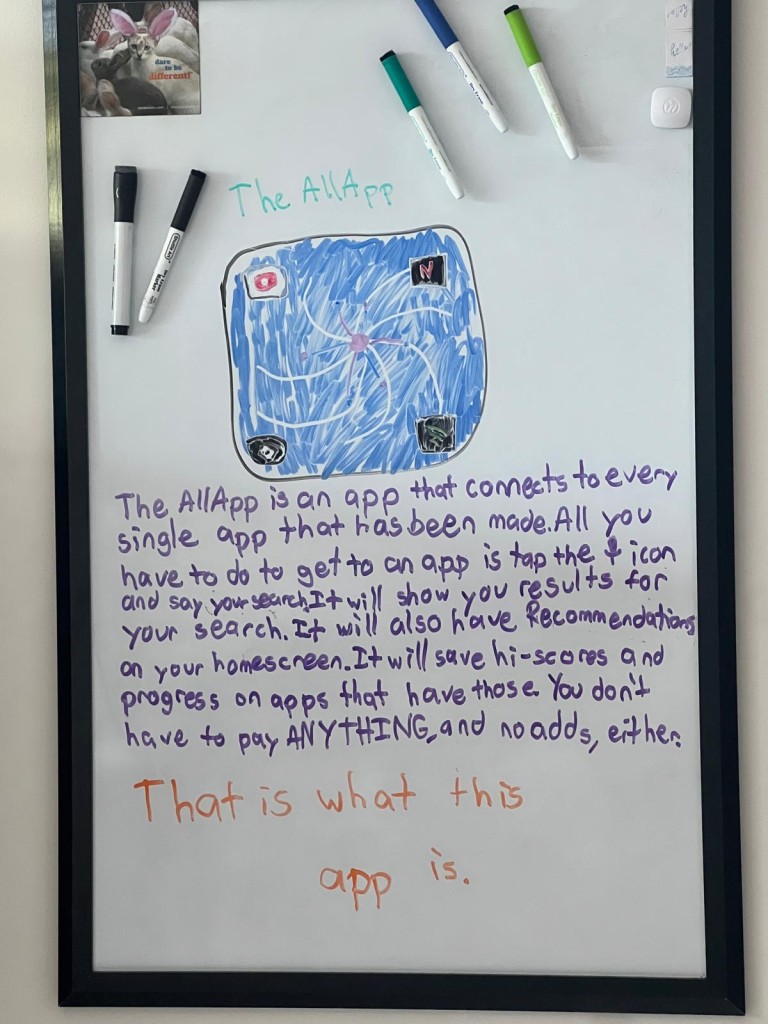 dare
to be
different!
hello!
The AllApp
N
The AllApp is an app that connects to every
single app that has been made. All you
have to do to get to an app is tap the icon
and say your search. It will show you results for
your search. It will also have Recommendations
on your homescreen. It will save hi-scores and
progress on apps that have those. You don't
have to pay ANYTHING, and no adds, either.
That is what this
app is.